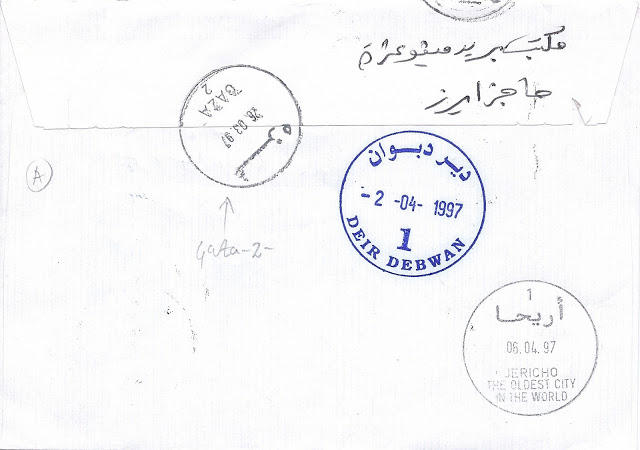 مكتب بريد
حاجز ايرز
GAZA
2
26.03.97
غــزه
A
Gaza-2-
دير ديوان
-2 -04- 1997
1
DEIR DEBWAN
1
أريحا
06.04.97
JERICHO
THE OLDEST CITY
IN THE WORLD